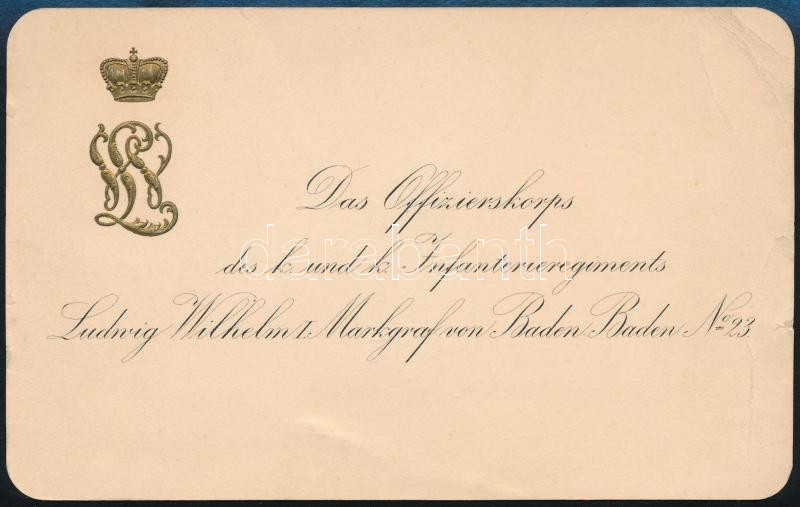 Das Offizierskorps
des k. und k. Infanterieregiments
Ludwig Wilhelm I. Markgraf von Baden-Baden No 23.
darabanth